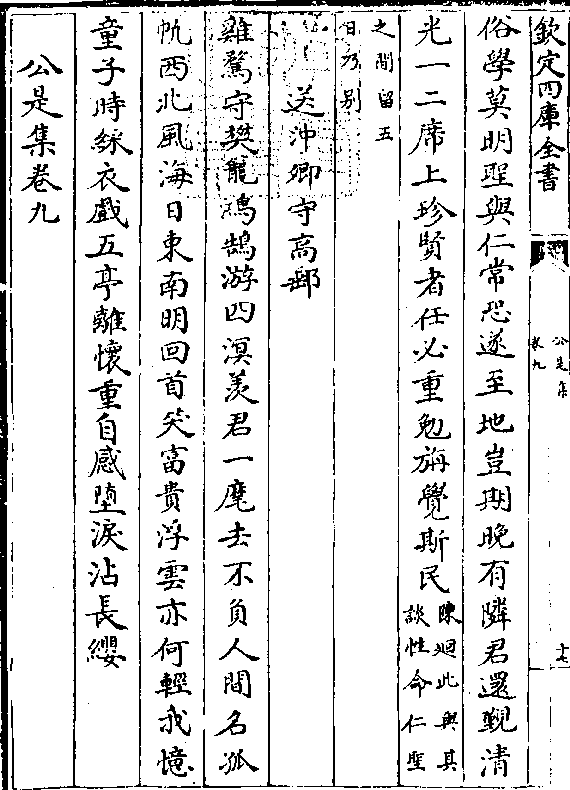 欽定四庫全書
公是集
卷九
十七
俗學莫明聖與仁常恐遂至地豈期晚有隣君還觀清
光一二席上珍賢者任必重勉旃覺斯民
陳廻此與其
談性命仁聖
之間留五
日乃别
送沖卿守高郵
雞鶩守樊籠鴻鵠游四溟羨君一麾去不負人間名孤
帆西北風海日東南明回首笑富貴浮雲亦何輕我憶
童子時綵衣戲五亭離懷重自感墮淚沾長纓
公是集卷九